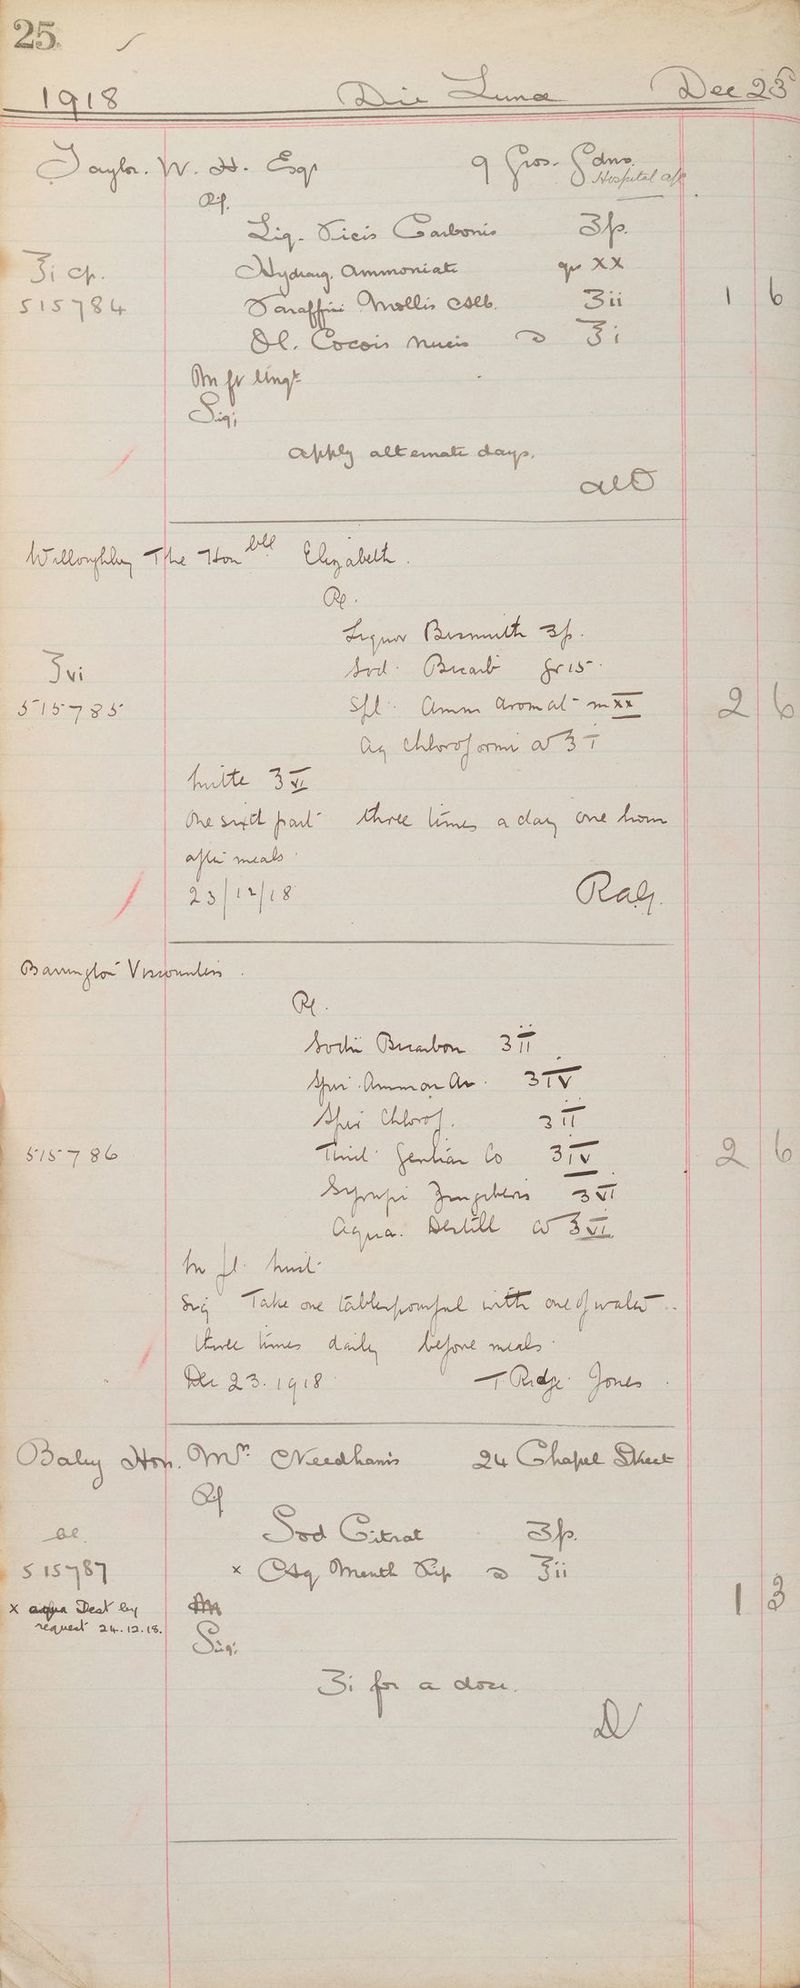 25
1918 Die Lunae Dec 23
Taylor. W. H. Esqr 9 Gros. Gdns.
Hospital
Rp.
Liq. Picis Carbonis ʒſs.
ʒi cp. Hydrarg. Ammoniate gr XX
515784 Paraffini Mollis Alb. ʒii 1 6
Ol. Cocois Nucis ad ℥i
M ft Ungt
Sig;
apply alternate days.
Willoughby The Honble Elizabeth.
Rp.
Liquor Bismuth ʒſs.
℥vi Sod. Bicarb gr 15.
515785 Spt. Amm Aromat m xx 2 6
Aq Chloroformi ad ℥i
Mitte ℥vi
One sixth part three times a day one hour
after meals.
23/12/18 RaG.
Barrington Viscountess.
Rp.
Sodii Bicarbon ʒii
Spir. Ammon Ar. ʒiv
Spir Chlorof. ʒii
515786 Tinct Gentian Co ʒiv 2 6
Syrupi Zingiberis ʒvi
Aqua. Destill ad ℥vi
M ft. Mist.
Sig Take one tablespoonful with one of water
three times daily before meals.
Dec 23. 1918 T Ridge Jones
Baby Hon. Mrs Needham's 24 Chapel Street
Rp
Sod Citrat ʒſs.
515787 x Aq Menth Pip ad ℥ii
x aqua Dest by M 1 3
request 24.12.18.
Sig;
ʒi for a dose.